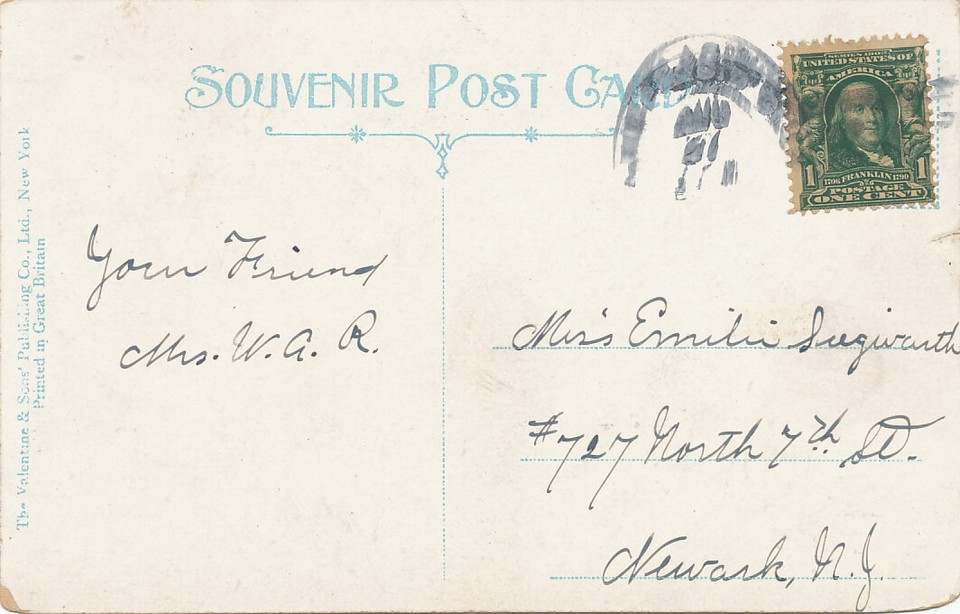 SOUVENIR POST CARD
SERIES 1902
UNITED STATES OF
AMERICA
1 1
1706 FRANKLIN 1790
POSTAGE
ONE CENT
The Valentine & Sons' Publishing Co., Ltd., New York
Printed in Great Britain
Your Friend
Mrs. W. A. R.
Miss Emilie Siegwarth
#727 North 7th St.
Newark, N.J.